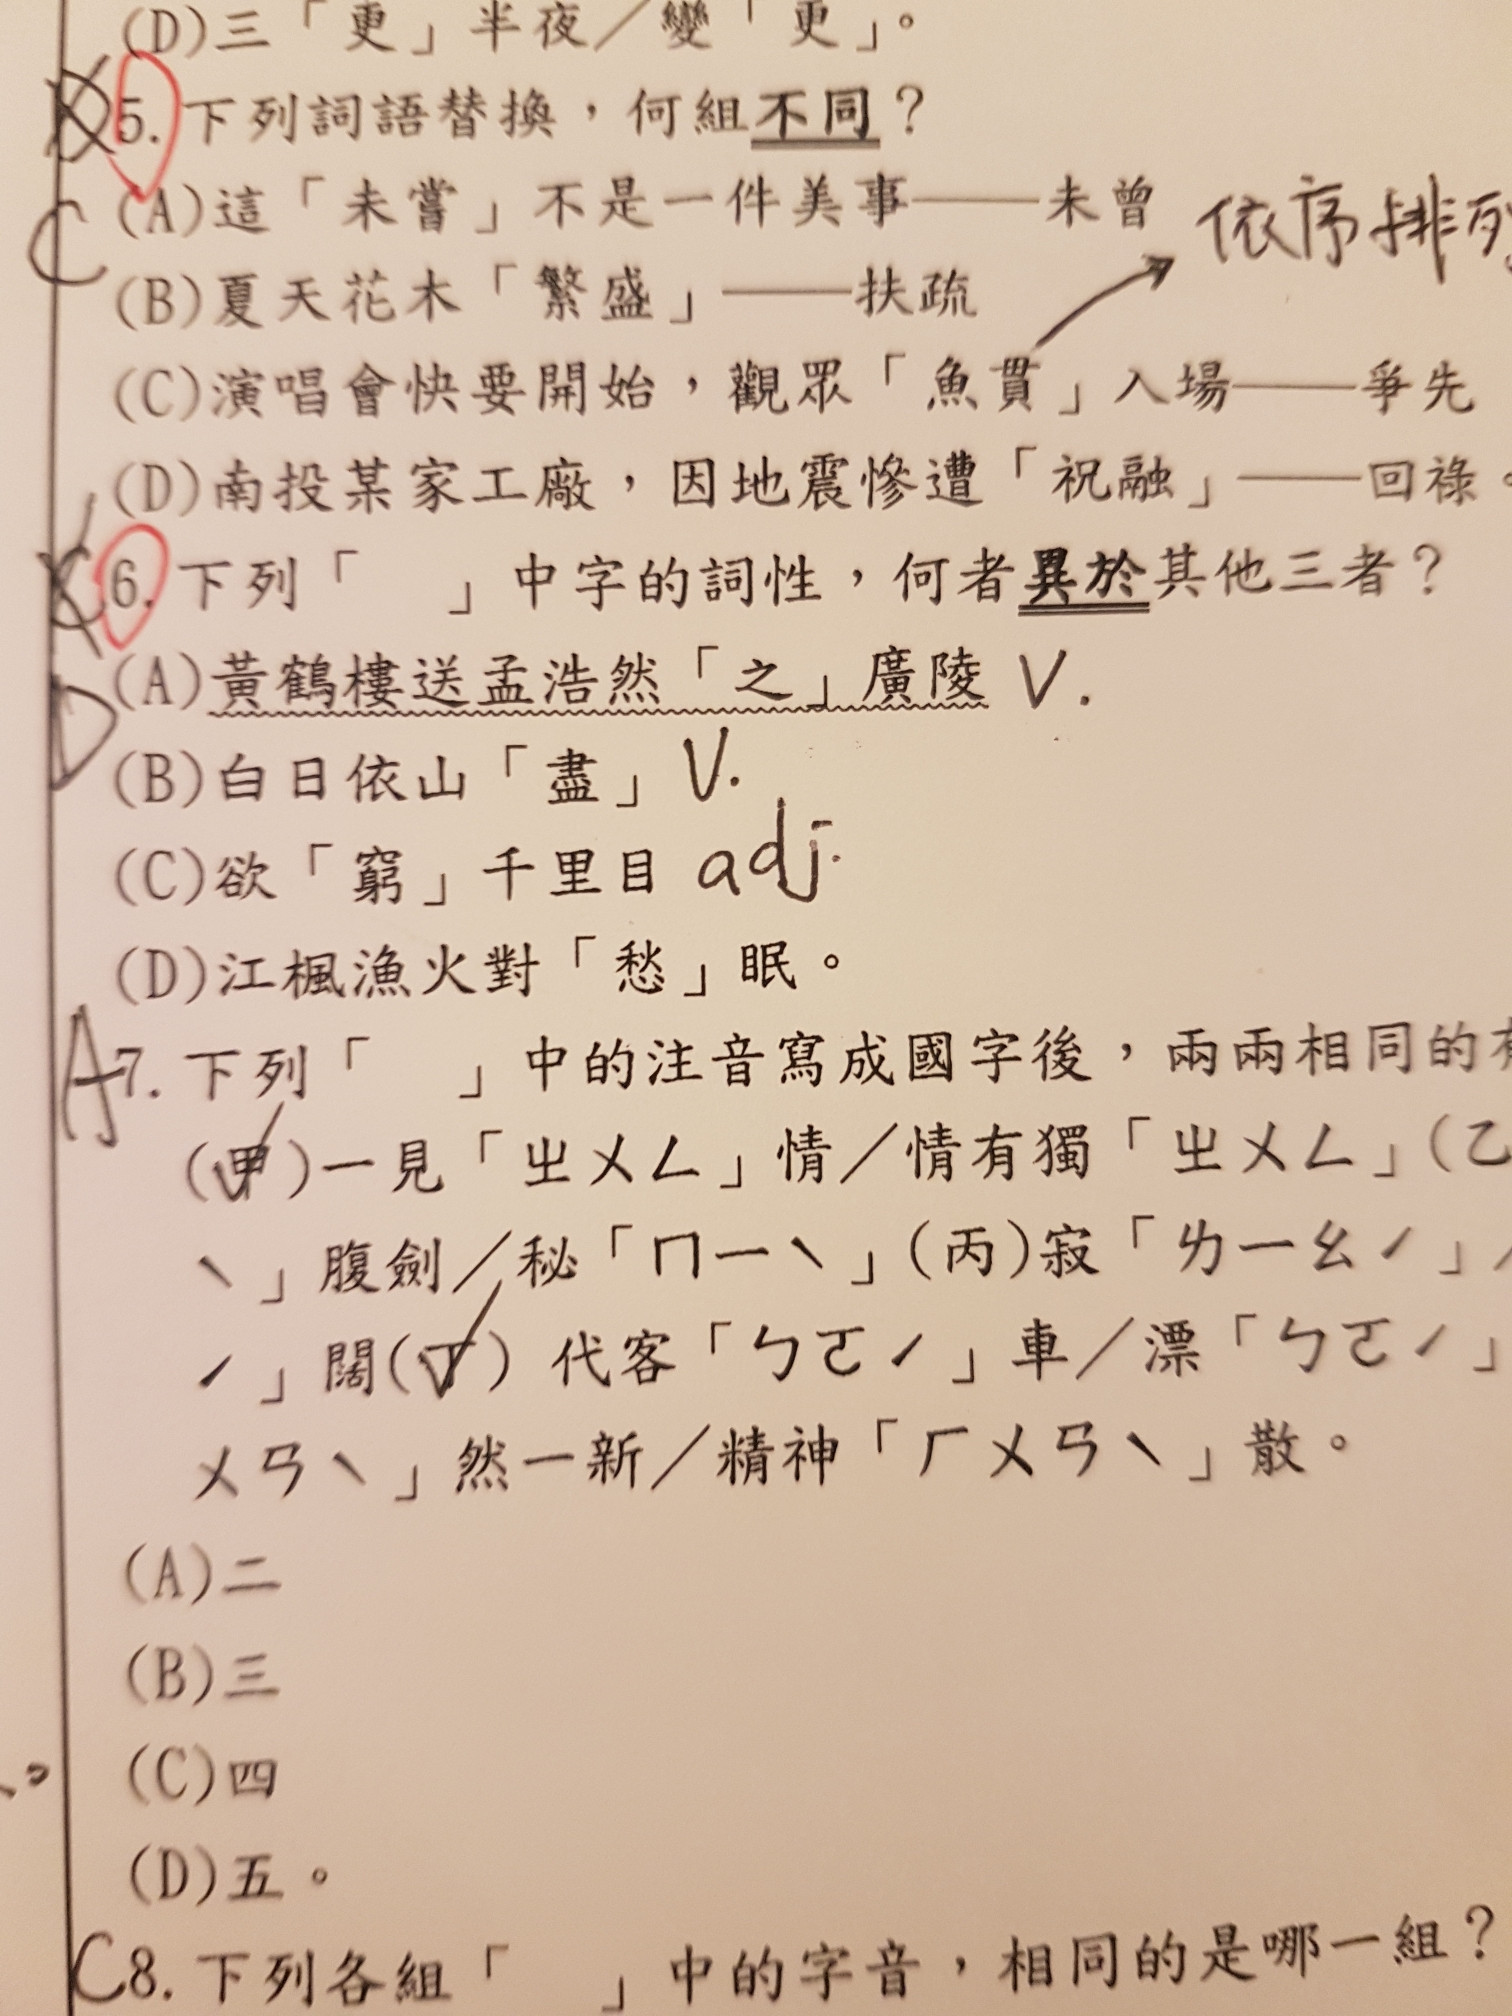 (D)三「更」半夜／變「更」。
5.下列詞語替換，何組不同？
C
(A)這「未嘗」不是一件美事——未曾
依序排列
(B)夏天花木「繁盛」——扶疏
(C)演唱會快要開始，觀眾「魚貫」入場——爭先
(D)南投某家工廠，因地震慘遭「祝融」——回祿。
6.下列「　」中字的詞性，何者異於其他三者？
D
(A)黃鶴樓送孟浩然「之」廣陵 V.
(B)白日依山「盡」 V.
(C)欲「窮」千里目 adj.
(D)江楓漁火對「愁」眠。
A 7.下列「　」中的注音寫成國字後，兩兩相同的有
(甲)一見「ㄓㄨㄥ」情／情有獨「ㄓㄨㄥ」(乙
ˋ」腹劍／秘「ㄇㄧˋ」(丙)寂「ㄌㄧㄠˊ」／
ˊ」闊(丁) 代客「ㄅㄛˊ」車／漂「ㄅㄛˊ」
ㄨㄢˋ」然一新／精神「ㄏㄨㄢˋ」散。
(A)二
(B)三
(C)四
(D)五。
C 8.下列各組「　」中的字音，相同的是哪一組？